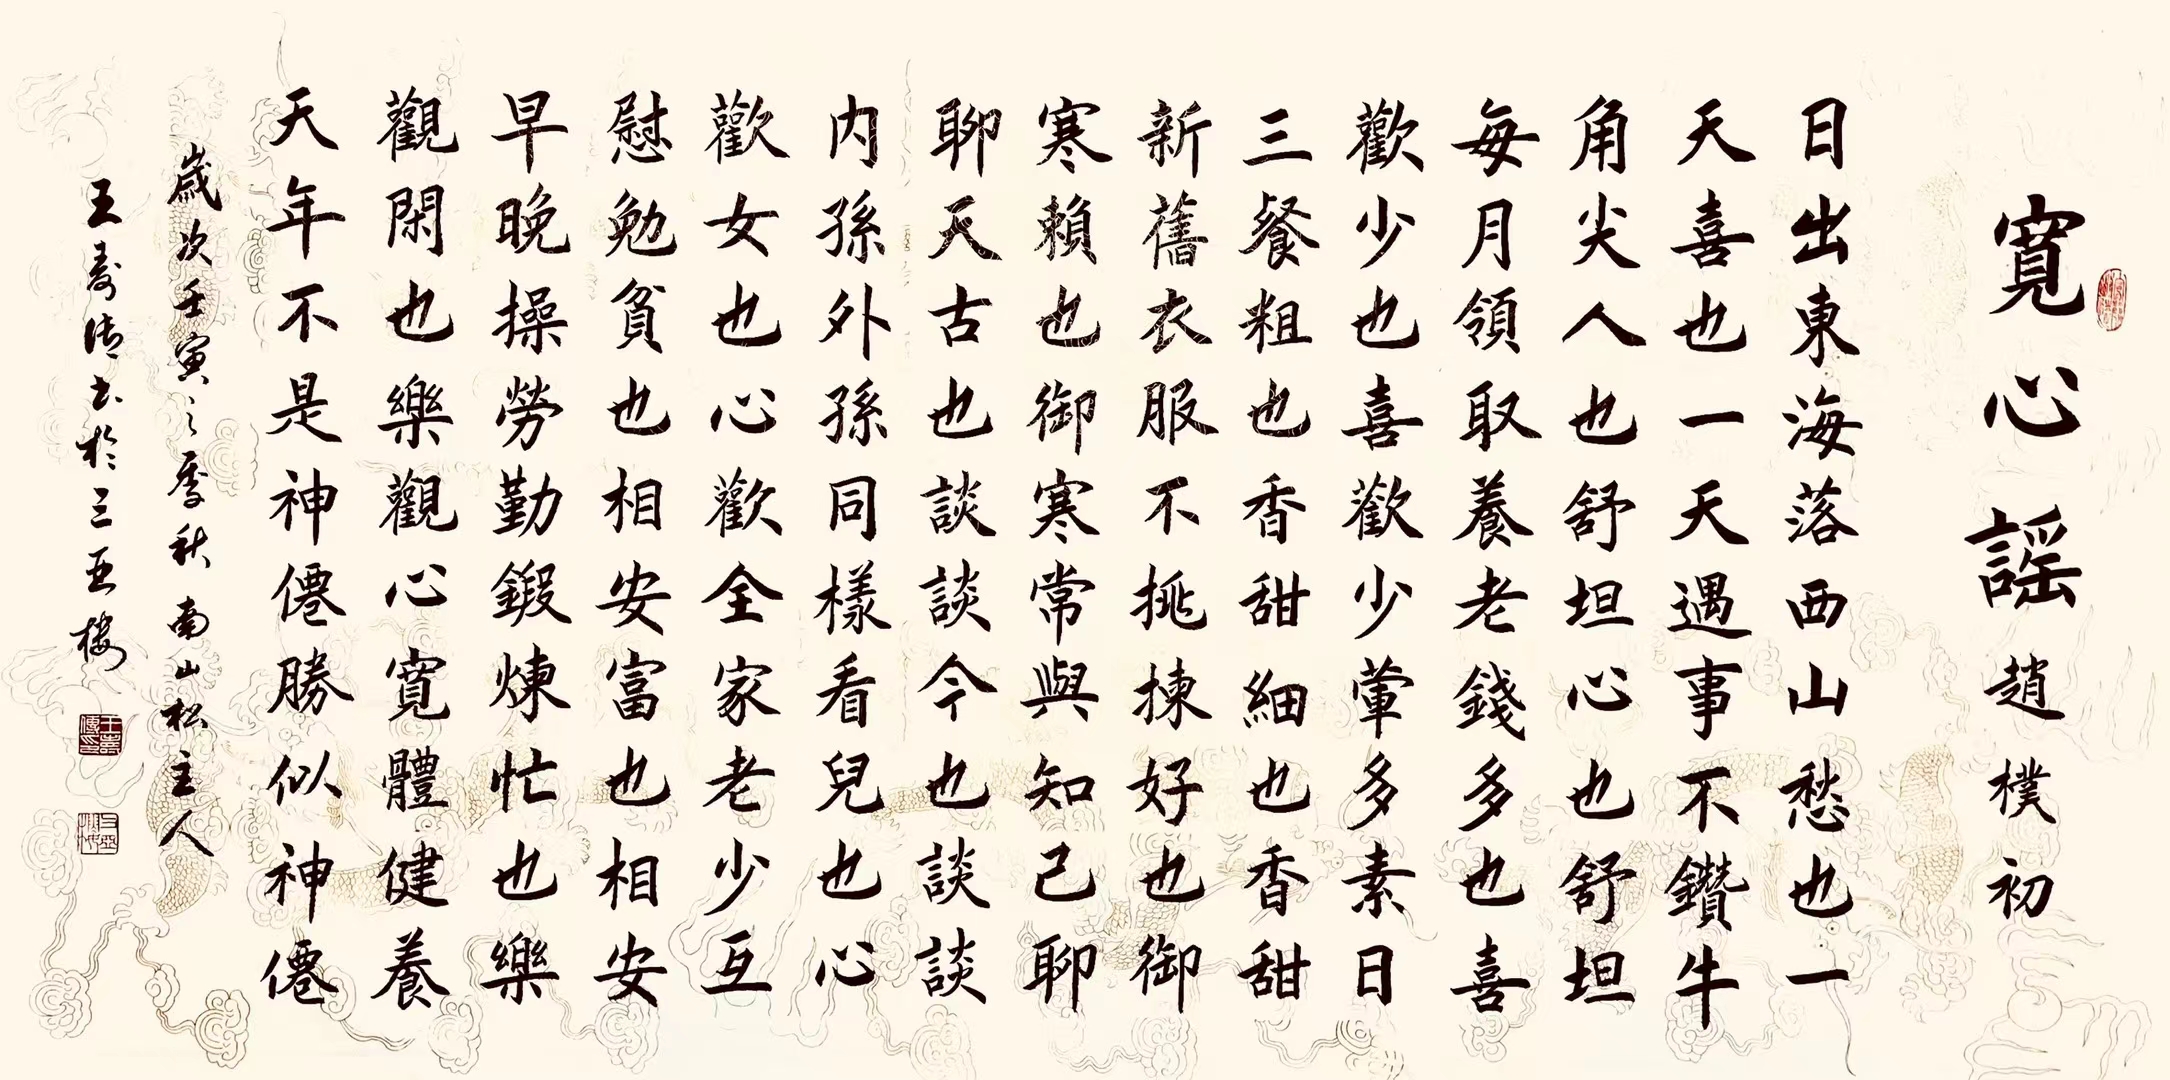 寬心謡 趙樸初
日出東海落西山愁也一
天喜也一天遇事不鑽牛
角尖人也舒坦心也舒坦
每月領取養老錢多也喜
歡少也喜歡少葷多素日
三餐粗也香甜細也香甜
新舊衣服不挑揀好也御
寒賴也御寒常與知己聊
聊天古也談談今也談談
内孫外孫同樣看兒也心
歡女也心歡全家老少互
慰勉貧也相安富也相安
早晚操勞勤鍛煉忙也樂
觀閑也樂觀心寬體健養
天年不是神僊勝似神僊
歲次壬寅之季秋南山松主人
王壽儒书於三亚樓